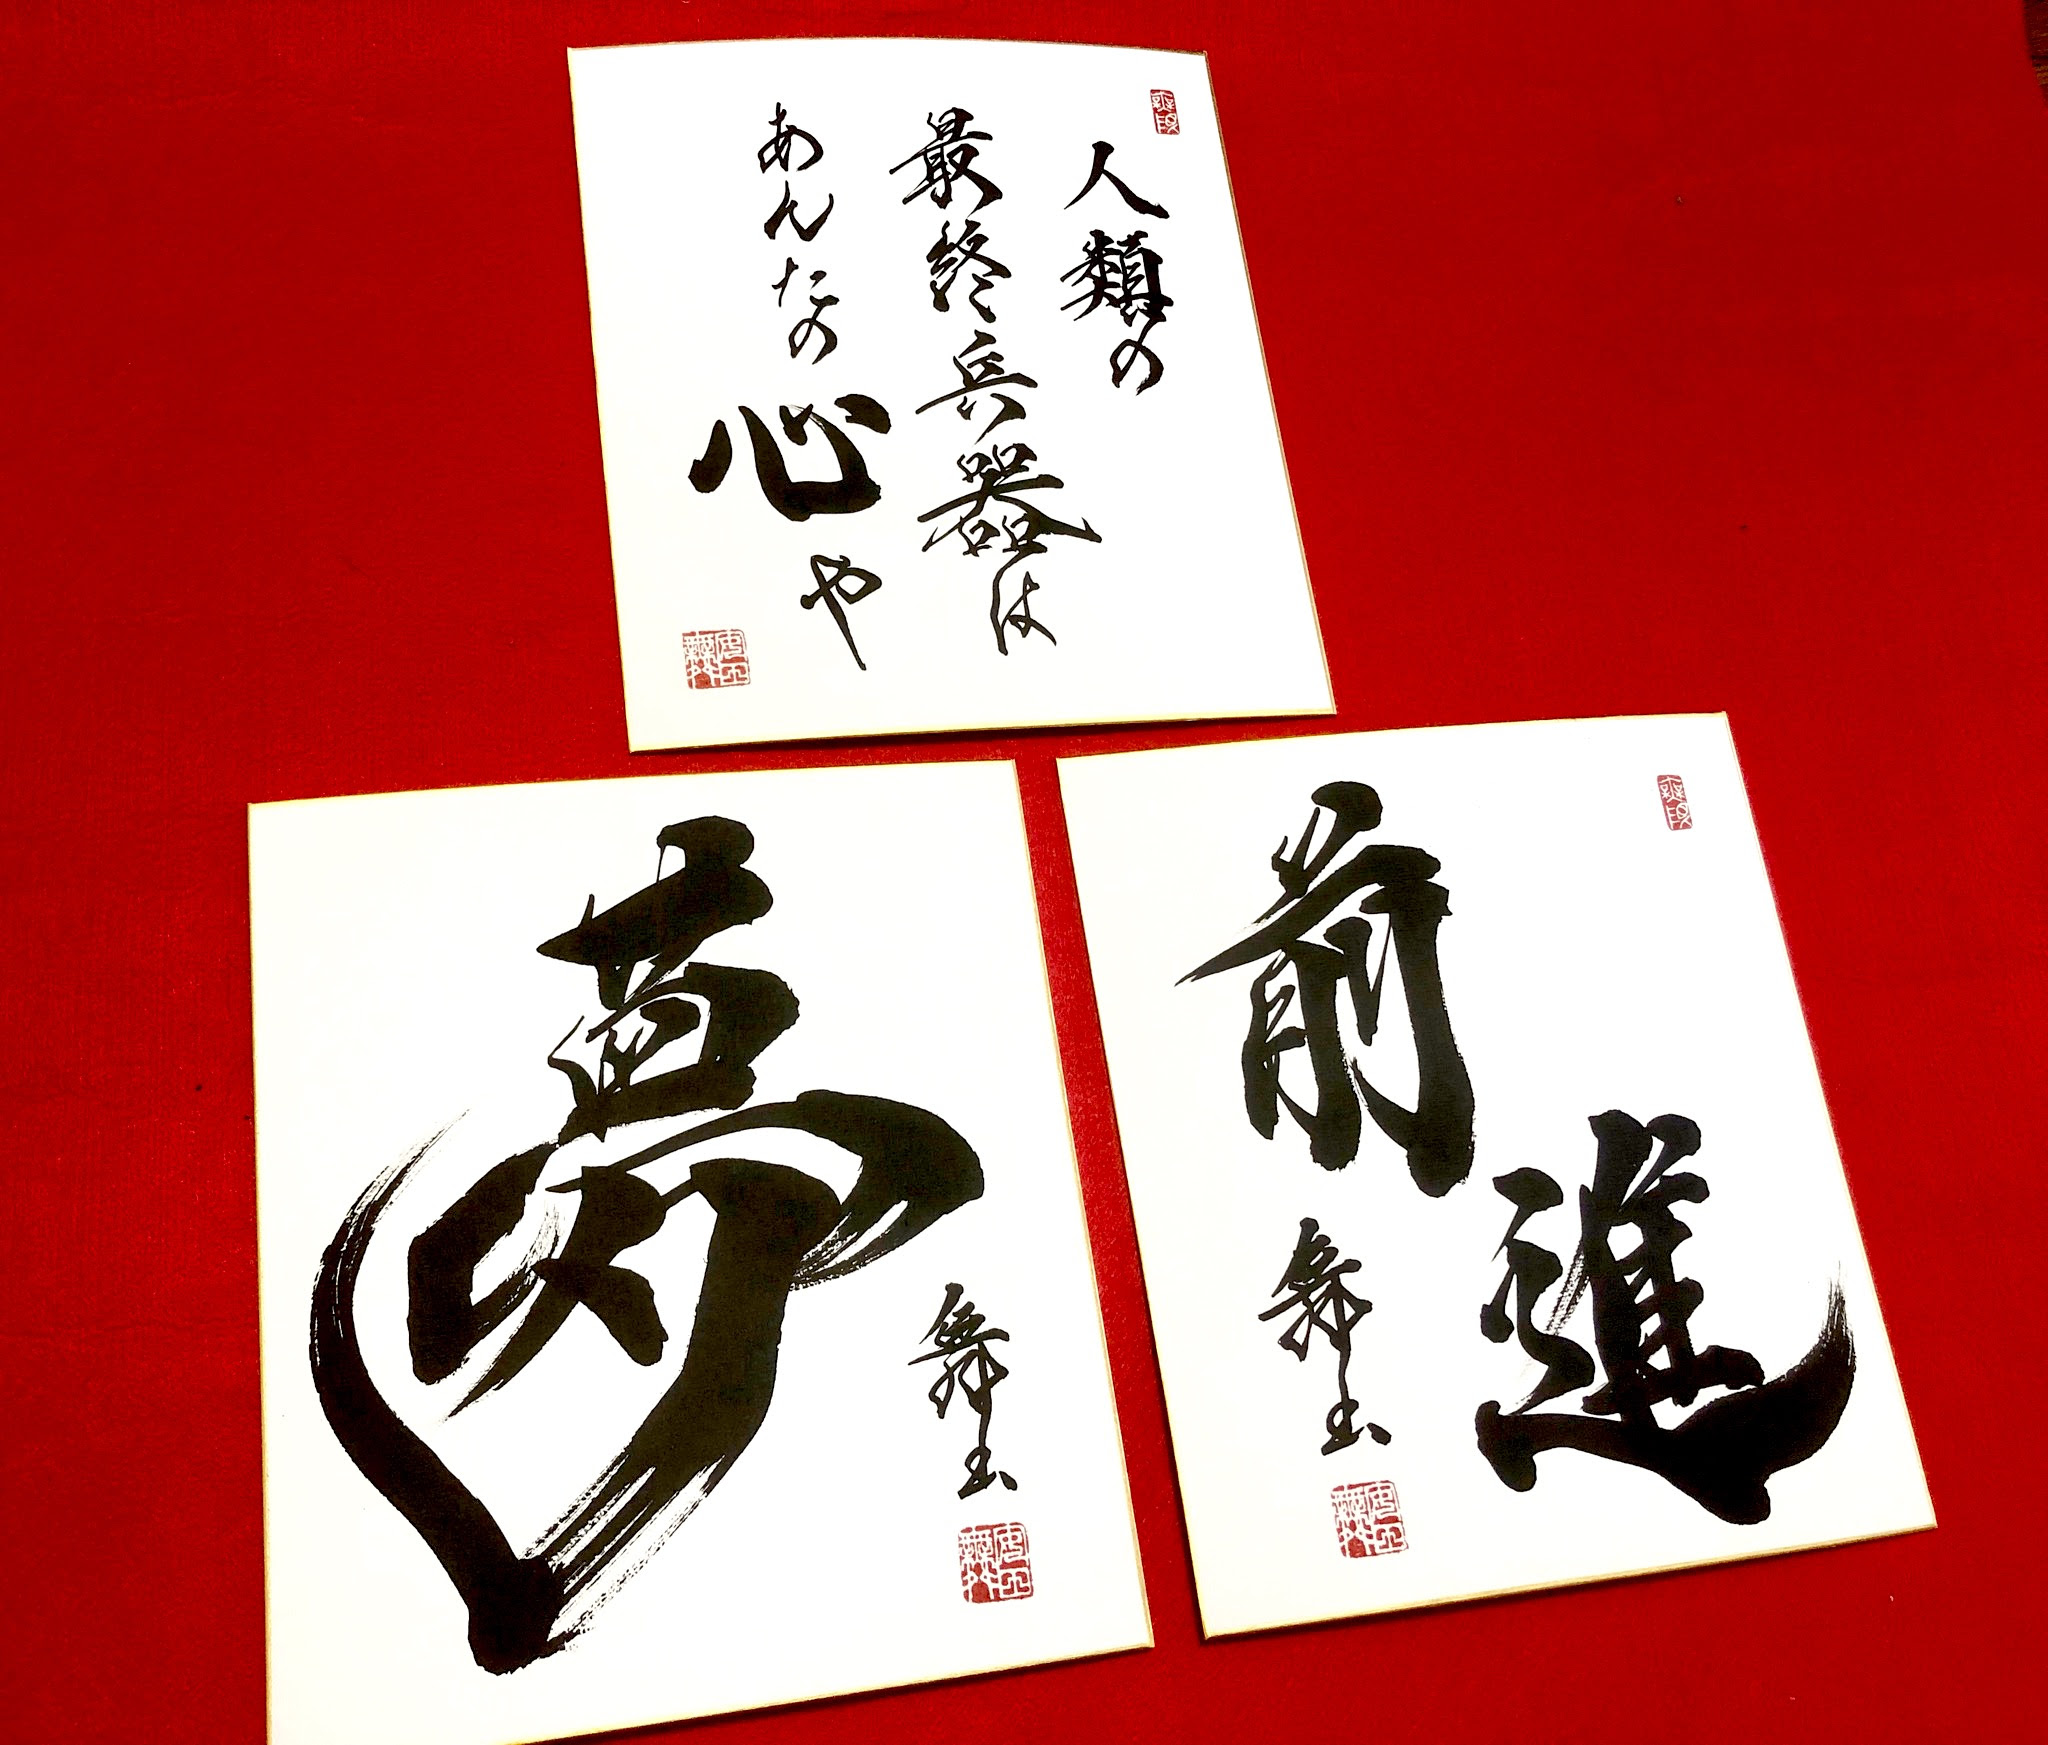 人類の
最終兵器は
あんたの心や
夢
舞玉
前進
舞玉